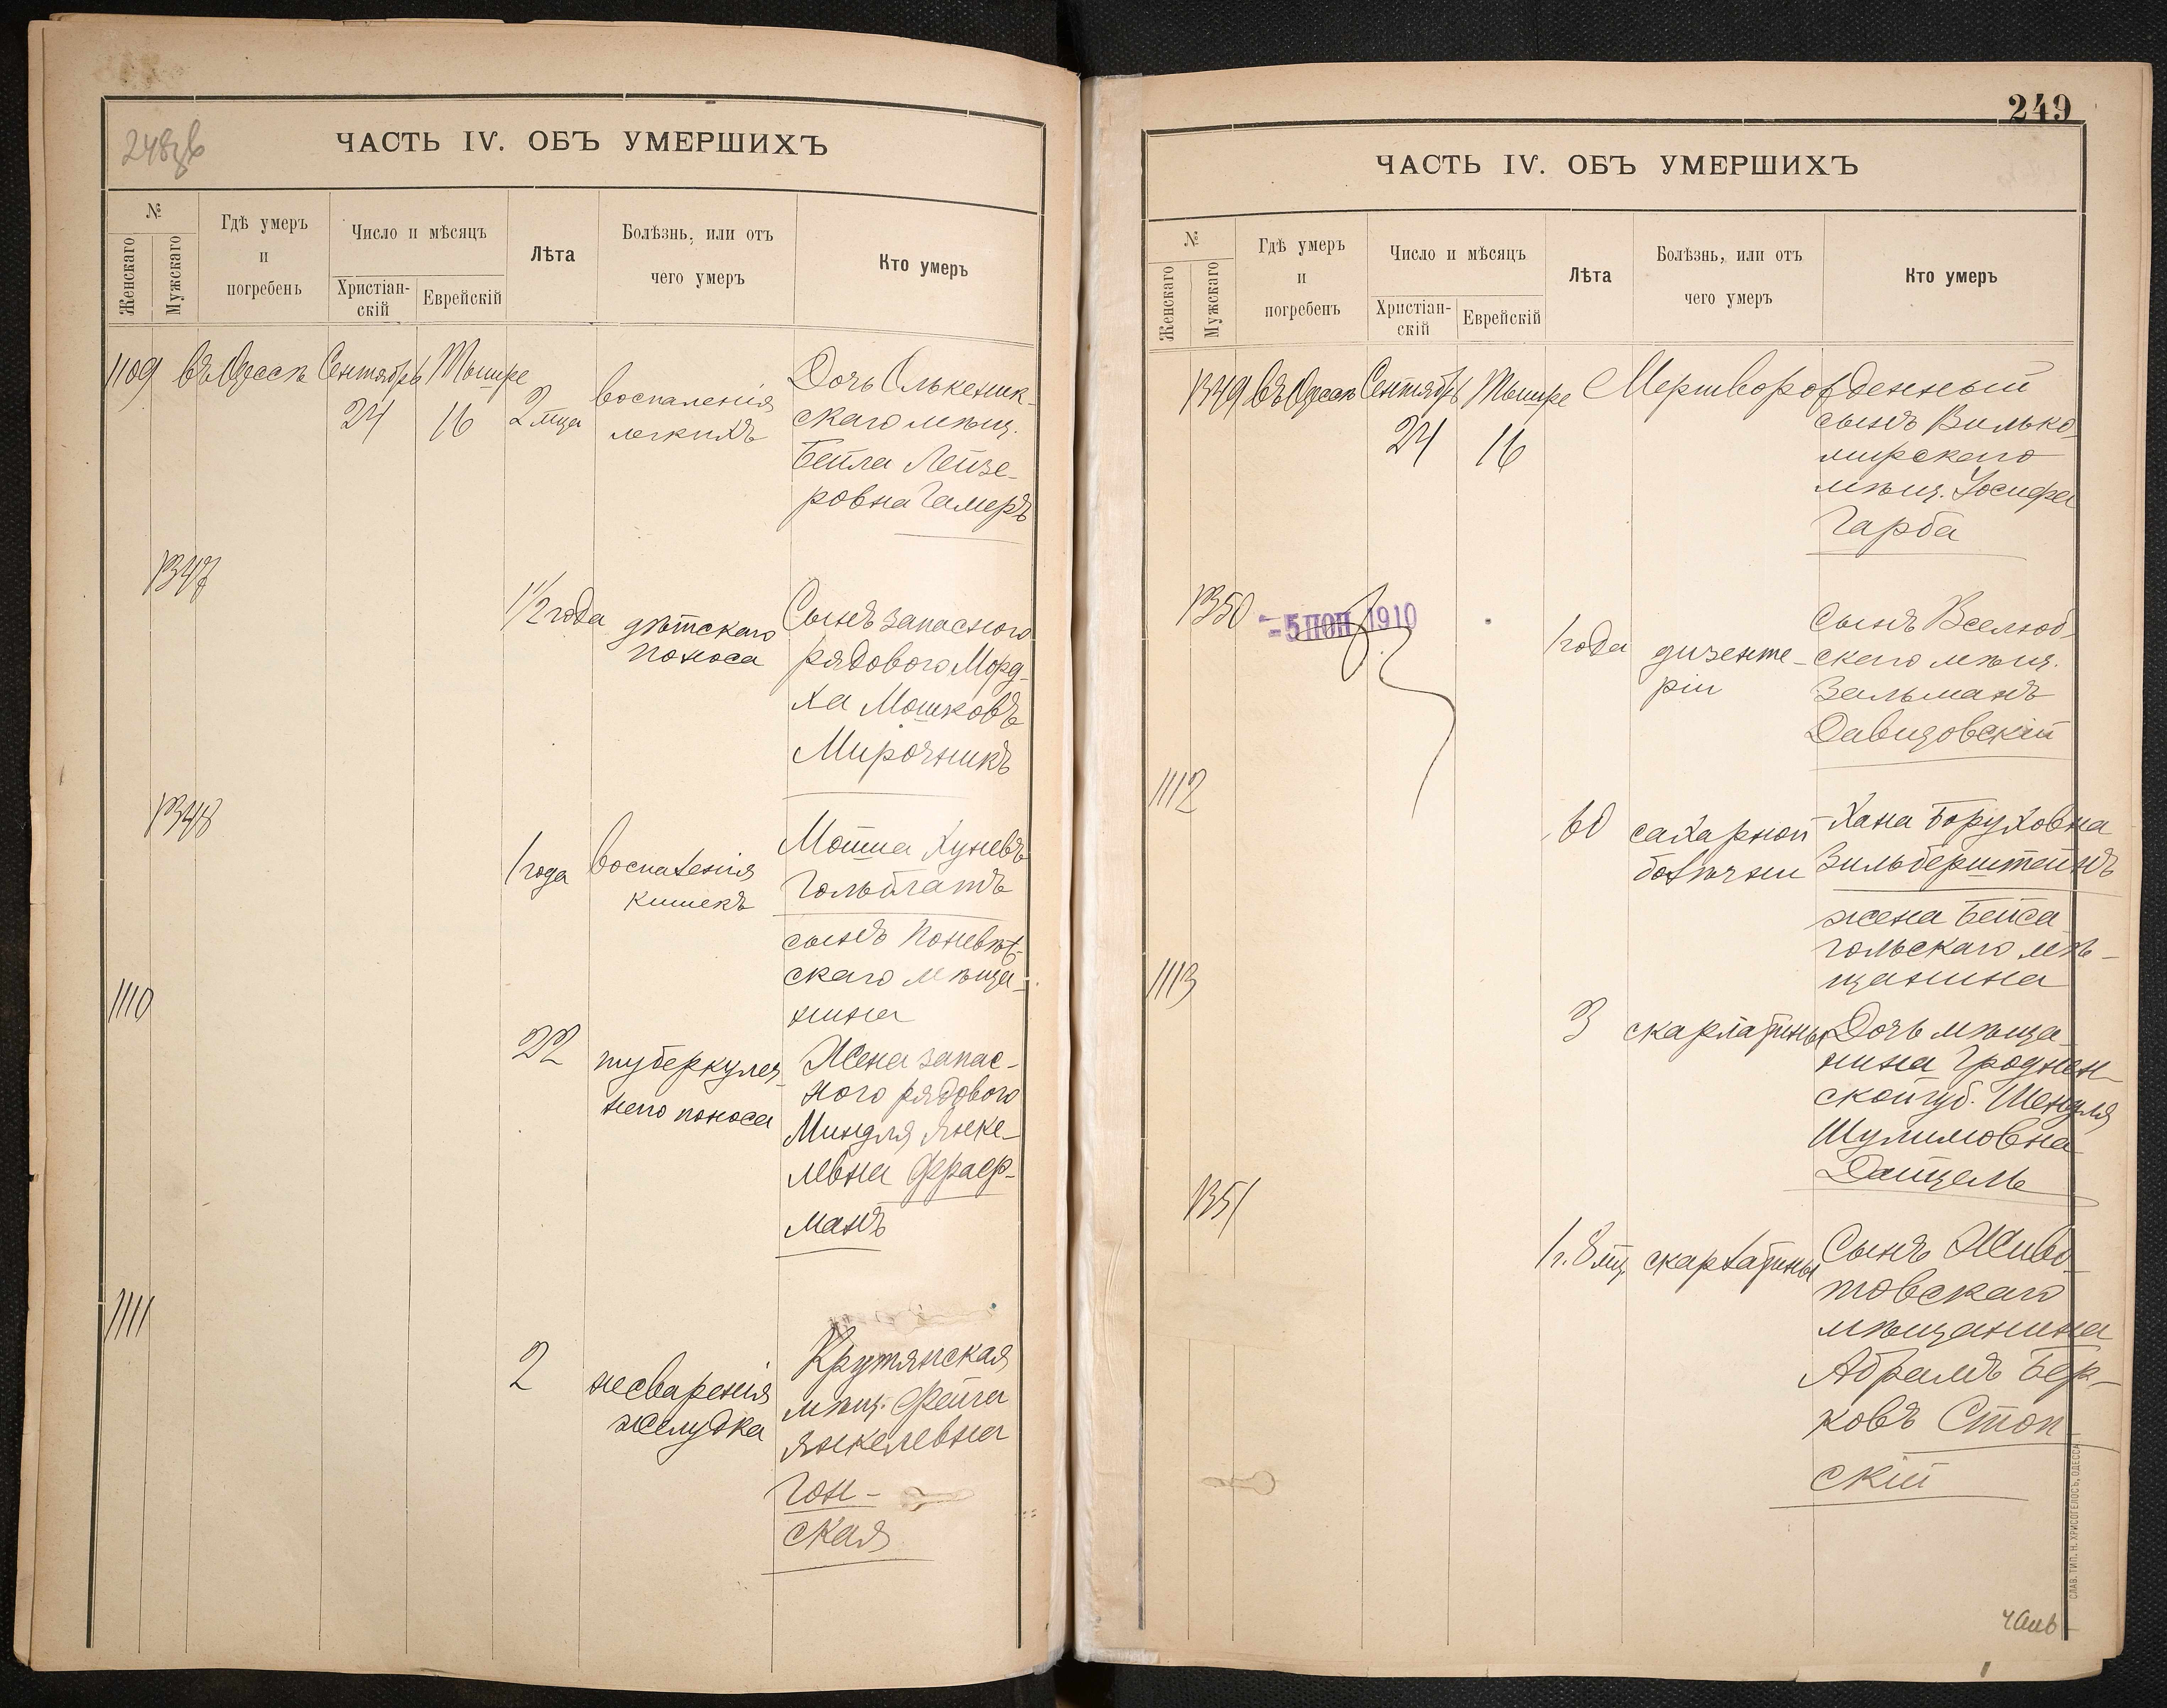 248об
ЧАСТЬ IV. ОБЪ УМЕРШИХЪ
№
Женскаго
Мужскаго
Гдѣ умеръ
и
погребенъ
Число и мѣсяцъ
Христіан-
скій
Еврейскій
Лѣта
Болѣзнь, или отъ
чего умеръ
Кто умеръ
1109 въ Одессѣ Сентябрь Тышре
24 16 2 мца
воспаленія
легкихъ
Дочь Олькеник-
скаго мѣщ.
Бейла Лейзе-
ровна Гамеръ
1347
1 1/2 года
дѣтскаго
поноса
Сынъ запаснаго
рядового Морд-
ха Мошковъ
Мирочникъ
1348
1 года
воспаленія
кишекъ
Мотша Хуневъ
Гольблатъ
сынъ Поневѣж-
скаго мѣща-
нина
1110
22
туберкулез-
наго поноса
Жена запас-
ного рядового
Миндля Янке-
левна
манъ
1111
2
несваренія
желудка
Крутянская
мѣщ. Фейга
Янкелевна
Гон-
ская
249
ЧАСТЬ IV. ОБЪ УМЕРШИХЪ
№
Женскаго
Мужскаго
Гдѣ умеръ
и
погребенъ
Число и мѣсяцъ
Христіан-
скій
Еврейскій
Лѣта
Болѣзнь, или отъ
чего умеръ
Кто умеръ
1349 въ Одессѣ Сентябрь Тышре Мертворожденный
24 16
сынъ Вилько-
мирскаго
мѣщ. Іосифа
Гарба
1350
-5 1910
1 года
дизенте-
ріи
Сынъ
скаго мѣщ.
Зальманъ
Давидовскій
1112
60
сахарной
болѣзни
Хана Боруховна
Зильберштейнъ
жена Бейса-
гольскаго мѣ-
щанина
1113
3
скарлатины
Дочь мѣща-
нина Гроднен-
ской губ. Шендля
Шулимовна
1351
1 г. 8 мц.
скарлатины
Сынъ Живо-
товскаго
мѣщанина
Абрамъ Бер-
ковъ Стоп
скій
СЛАВ. ТИП. Н. ХРИСОГЕЛОСЪ, ОДЕССА.